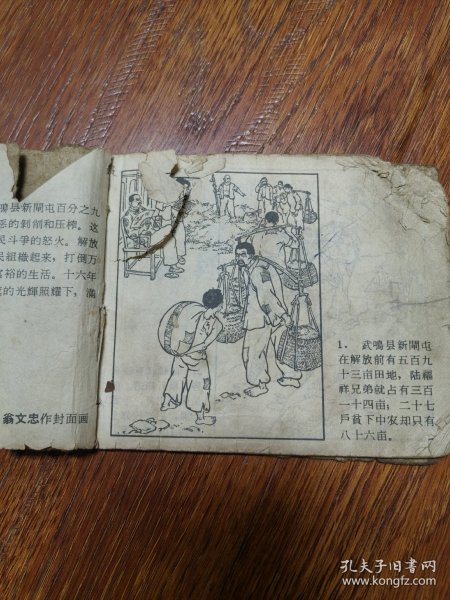 鳴县新閘屯百分之九
恶的剝削和压榨。这
民斗爭的怒火。解放
民組織起来，打倒万
富裕的生活。十六年
的光輝照耀下，滿
翁文忠作封面画
1. 武鳴县新閘屯
在解放前有五百九
十三亩田地，陆福
祥兄弟就占有三百
一十四亩；二十七
戶貧下中农却只有
八十六亩。
孔夫子旧书网
www.kongfz.com